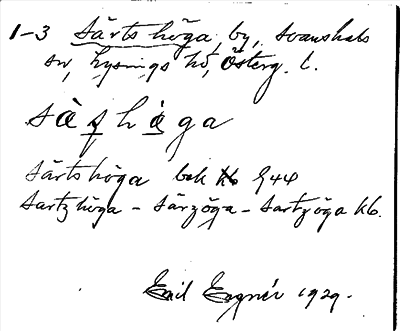 1-3 Särtshöga, by, Svanshals
sn, Lysings hd, Österg. l.
sä̀ṣhö̀ga
Särtshöga bok Kb 944
Sartzhöga - Särzöga - Sartzöga Kb.
Emil Engnér 1929.